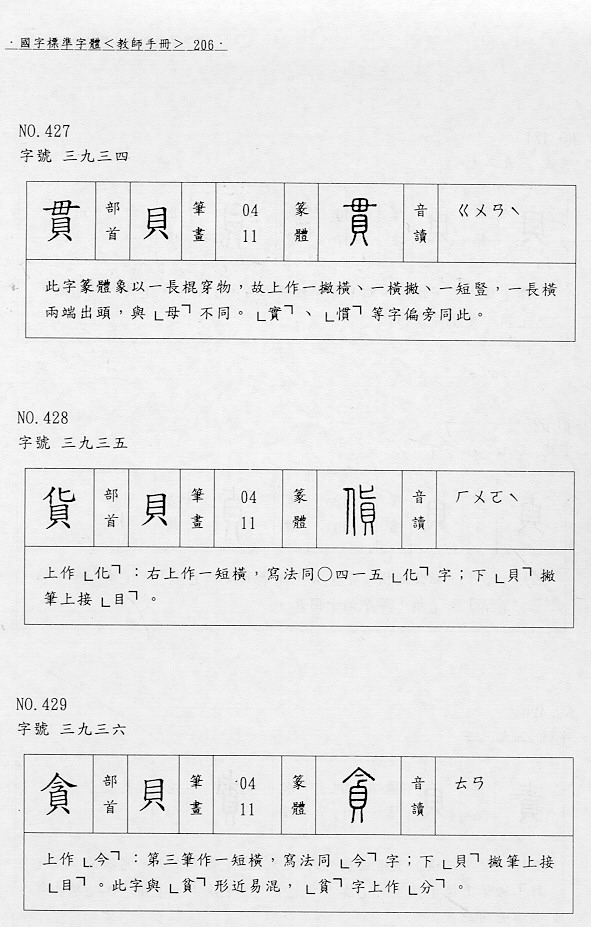 ·國字標準字體<教師手冊> 206·
NO.427
字號 三九三四
貫 部首 貝 筆畫 04 11 篆體 貫 音讀 ㄍㄨㄢˋ
此字篆體象以一長棍穿物，故上作一撇橫、一橫撇、一短豎，一長橫
兩端出頭，與「母」不同。「實」、「慣」等字偏旁同此。
NO.428
字號 三九三五
貨 部首 貝 筆畫 04 11 篆體 貨 音讀 ㄏㄨㄛˋ
上作「化」：右上作一短橫，寫法同〇四一五「化」字；下「貝」撇
筆上接「目」。
NO.429
字號 三九三六
貪 部首 貝 筆畫 04 11 篆體 貪 音讀 ㄊㄢ
上作「今」：第三筆作一短橫，寫法同「今」字；下「貝」撇筆上接
「目」。此字與「貧」形近易混，「貧」字上作「分」。